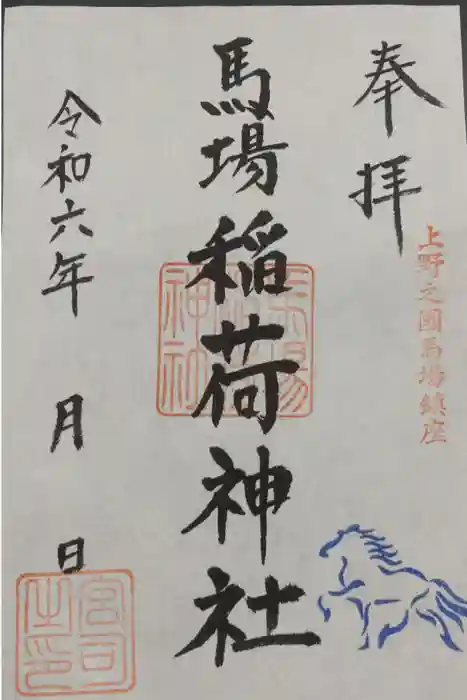 奉拝
上野之國馬場鎮座
馬場稲荷神社
令和六年 月 日
宮司之印